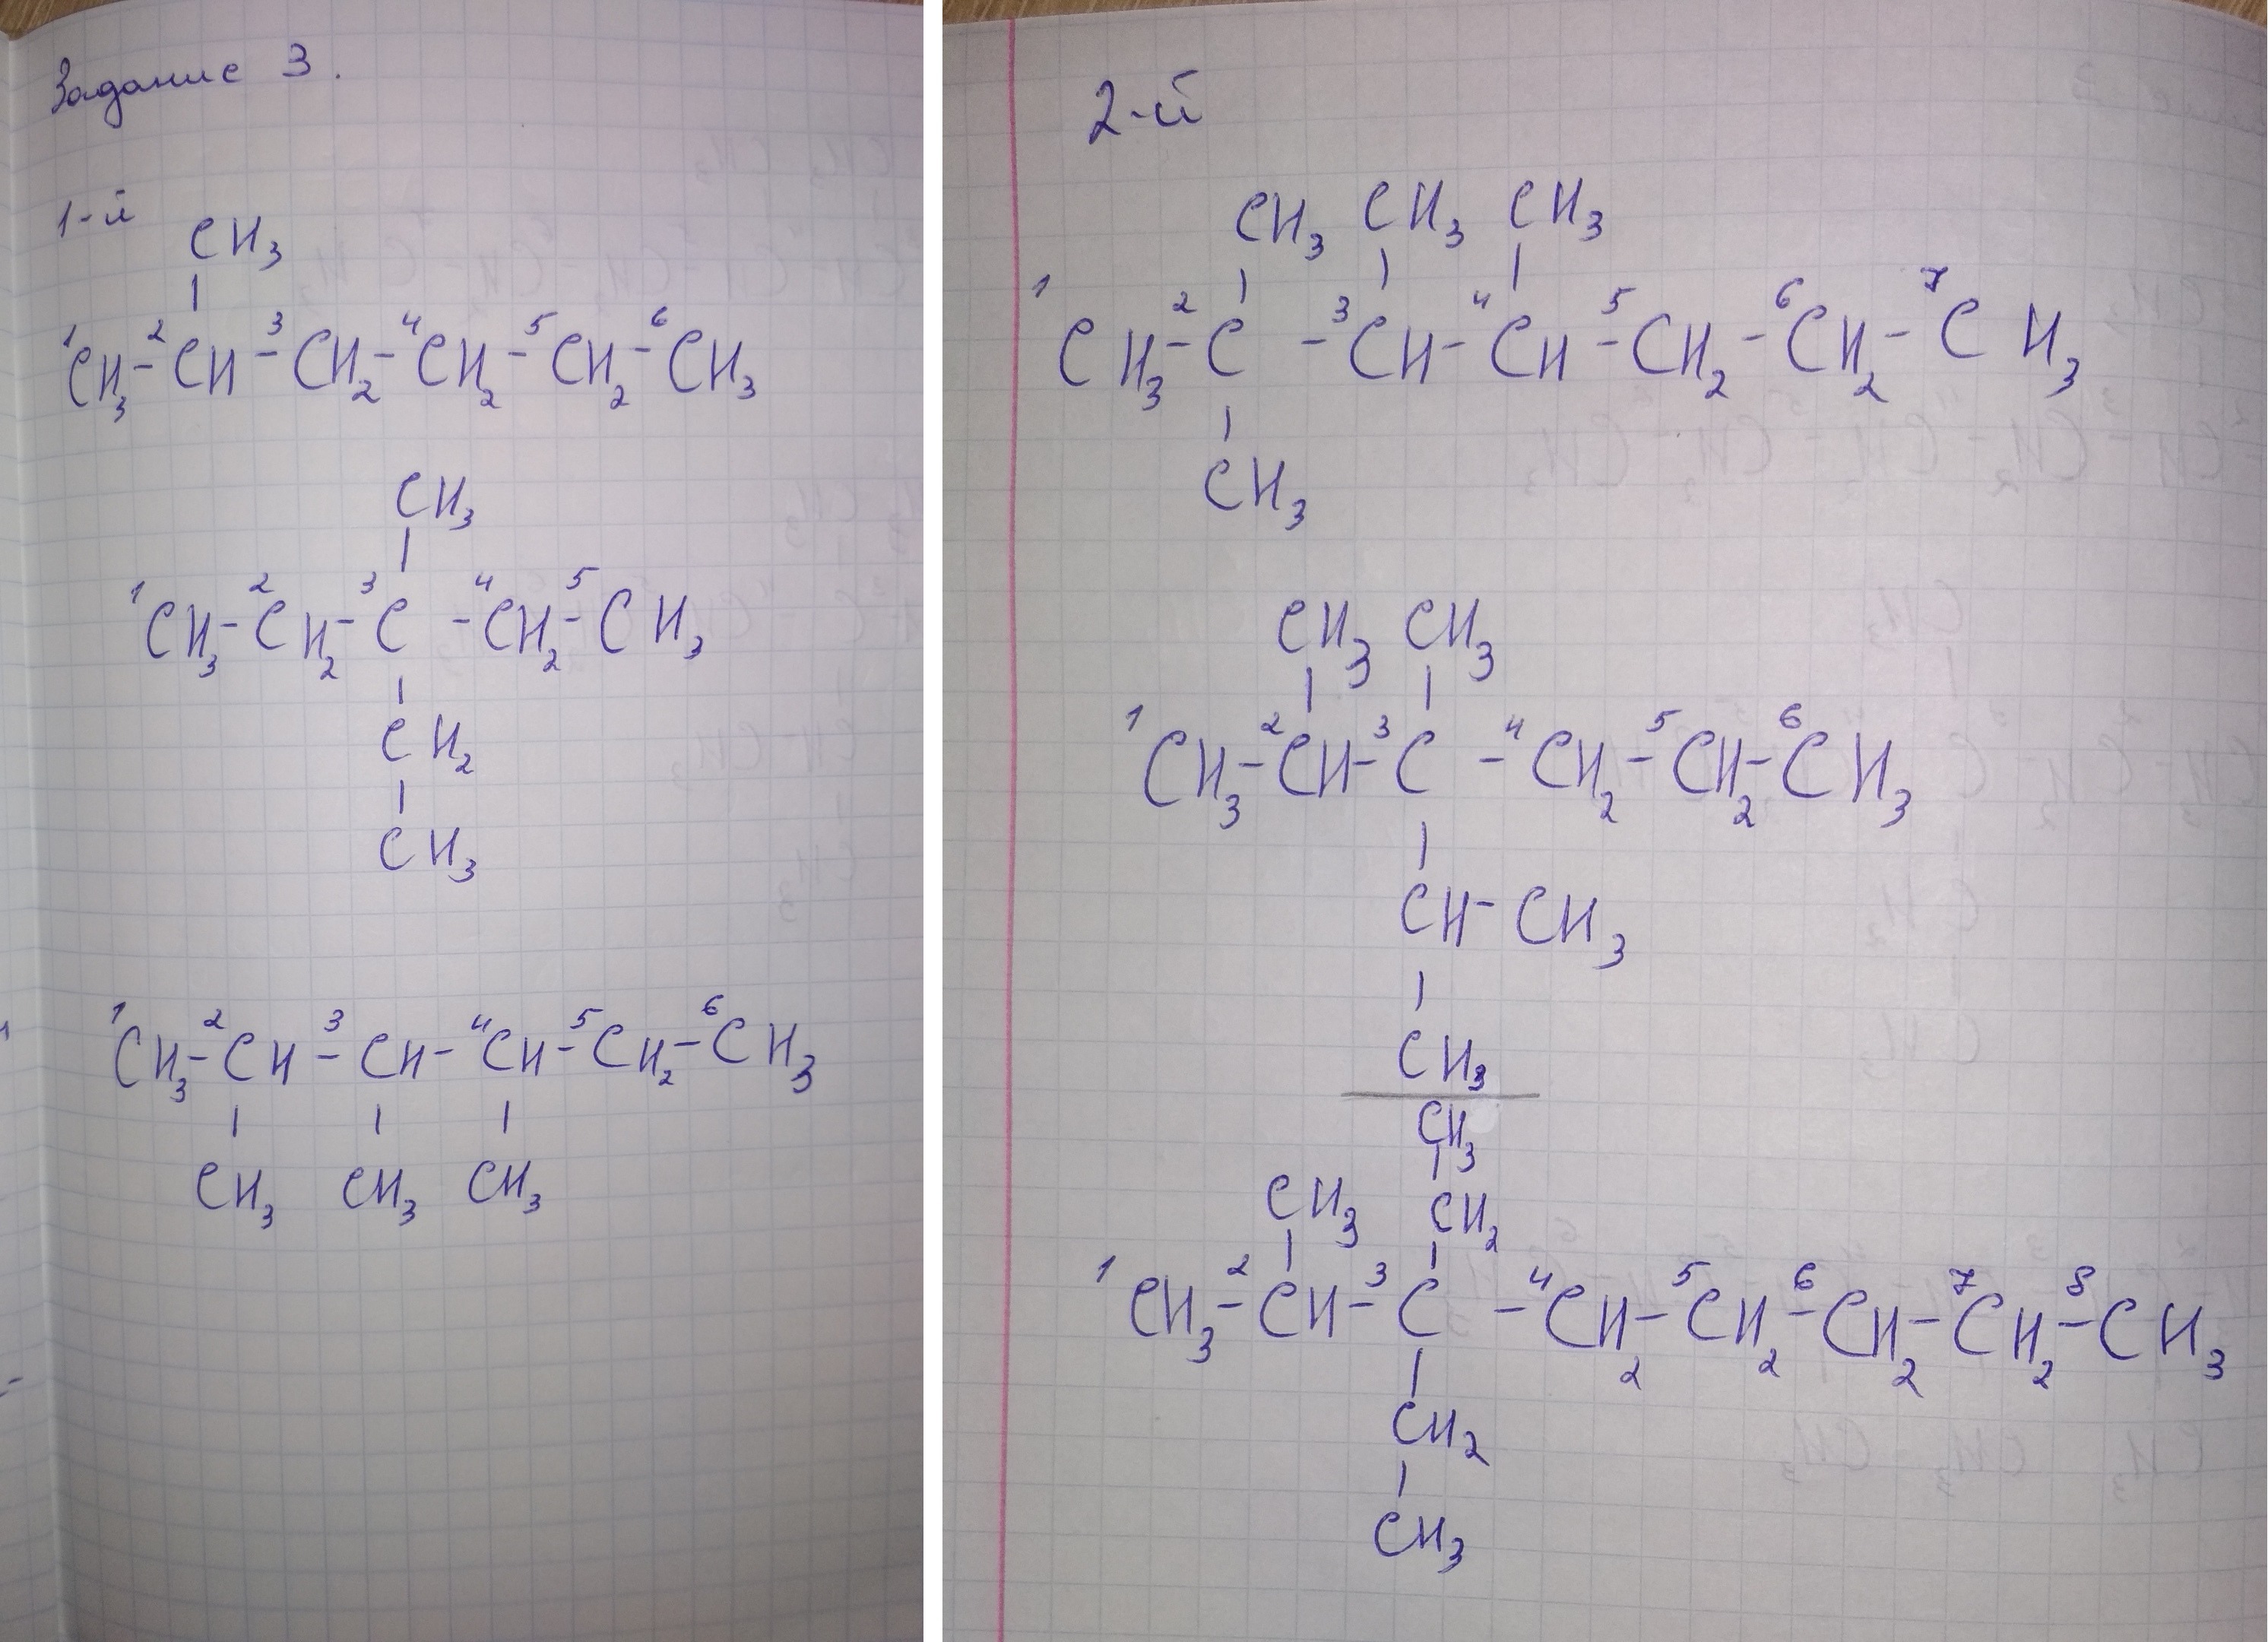 Задание 3.
1-й
CH3
1CH3-2CH-3CH2-4CH2-5CH2-6CH3
CH3
1CH3-2CH2-3C-4CH2-5CH3
CH2
CH3
1CH3-2CH-3CH-4CH-5CH2-6CH3
CH3 CH3 CH3
2-й
CH3 CH3 CH3
1CH3-2C-3CH-4CH-5CH2-6CH2-7CH3
CH3
CH3 CH3
1CH3-2CH-3C-4CH2-5CH2-6CH3
CH-CH3
CH3
CH3
CH3 CH2
1CH3-2CH-3C-4CH2-5CH2-6CH2-7CH2-8CH3
CH2
CH3